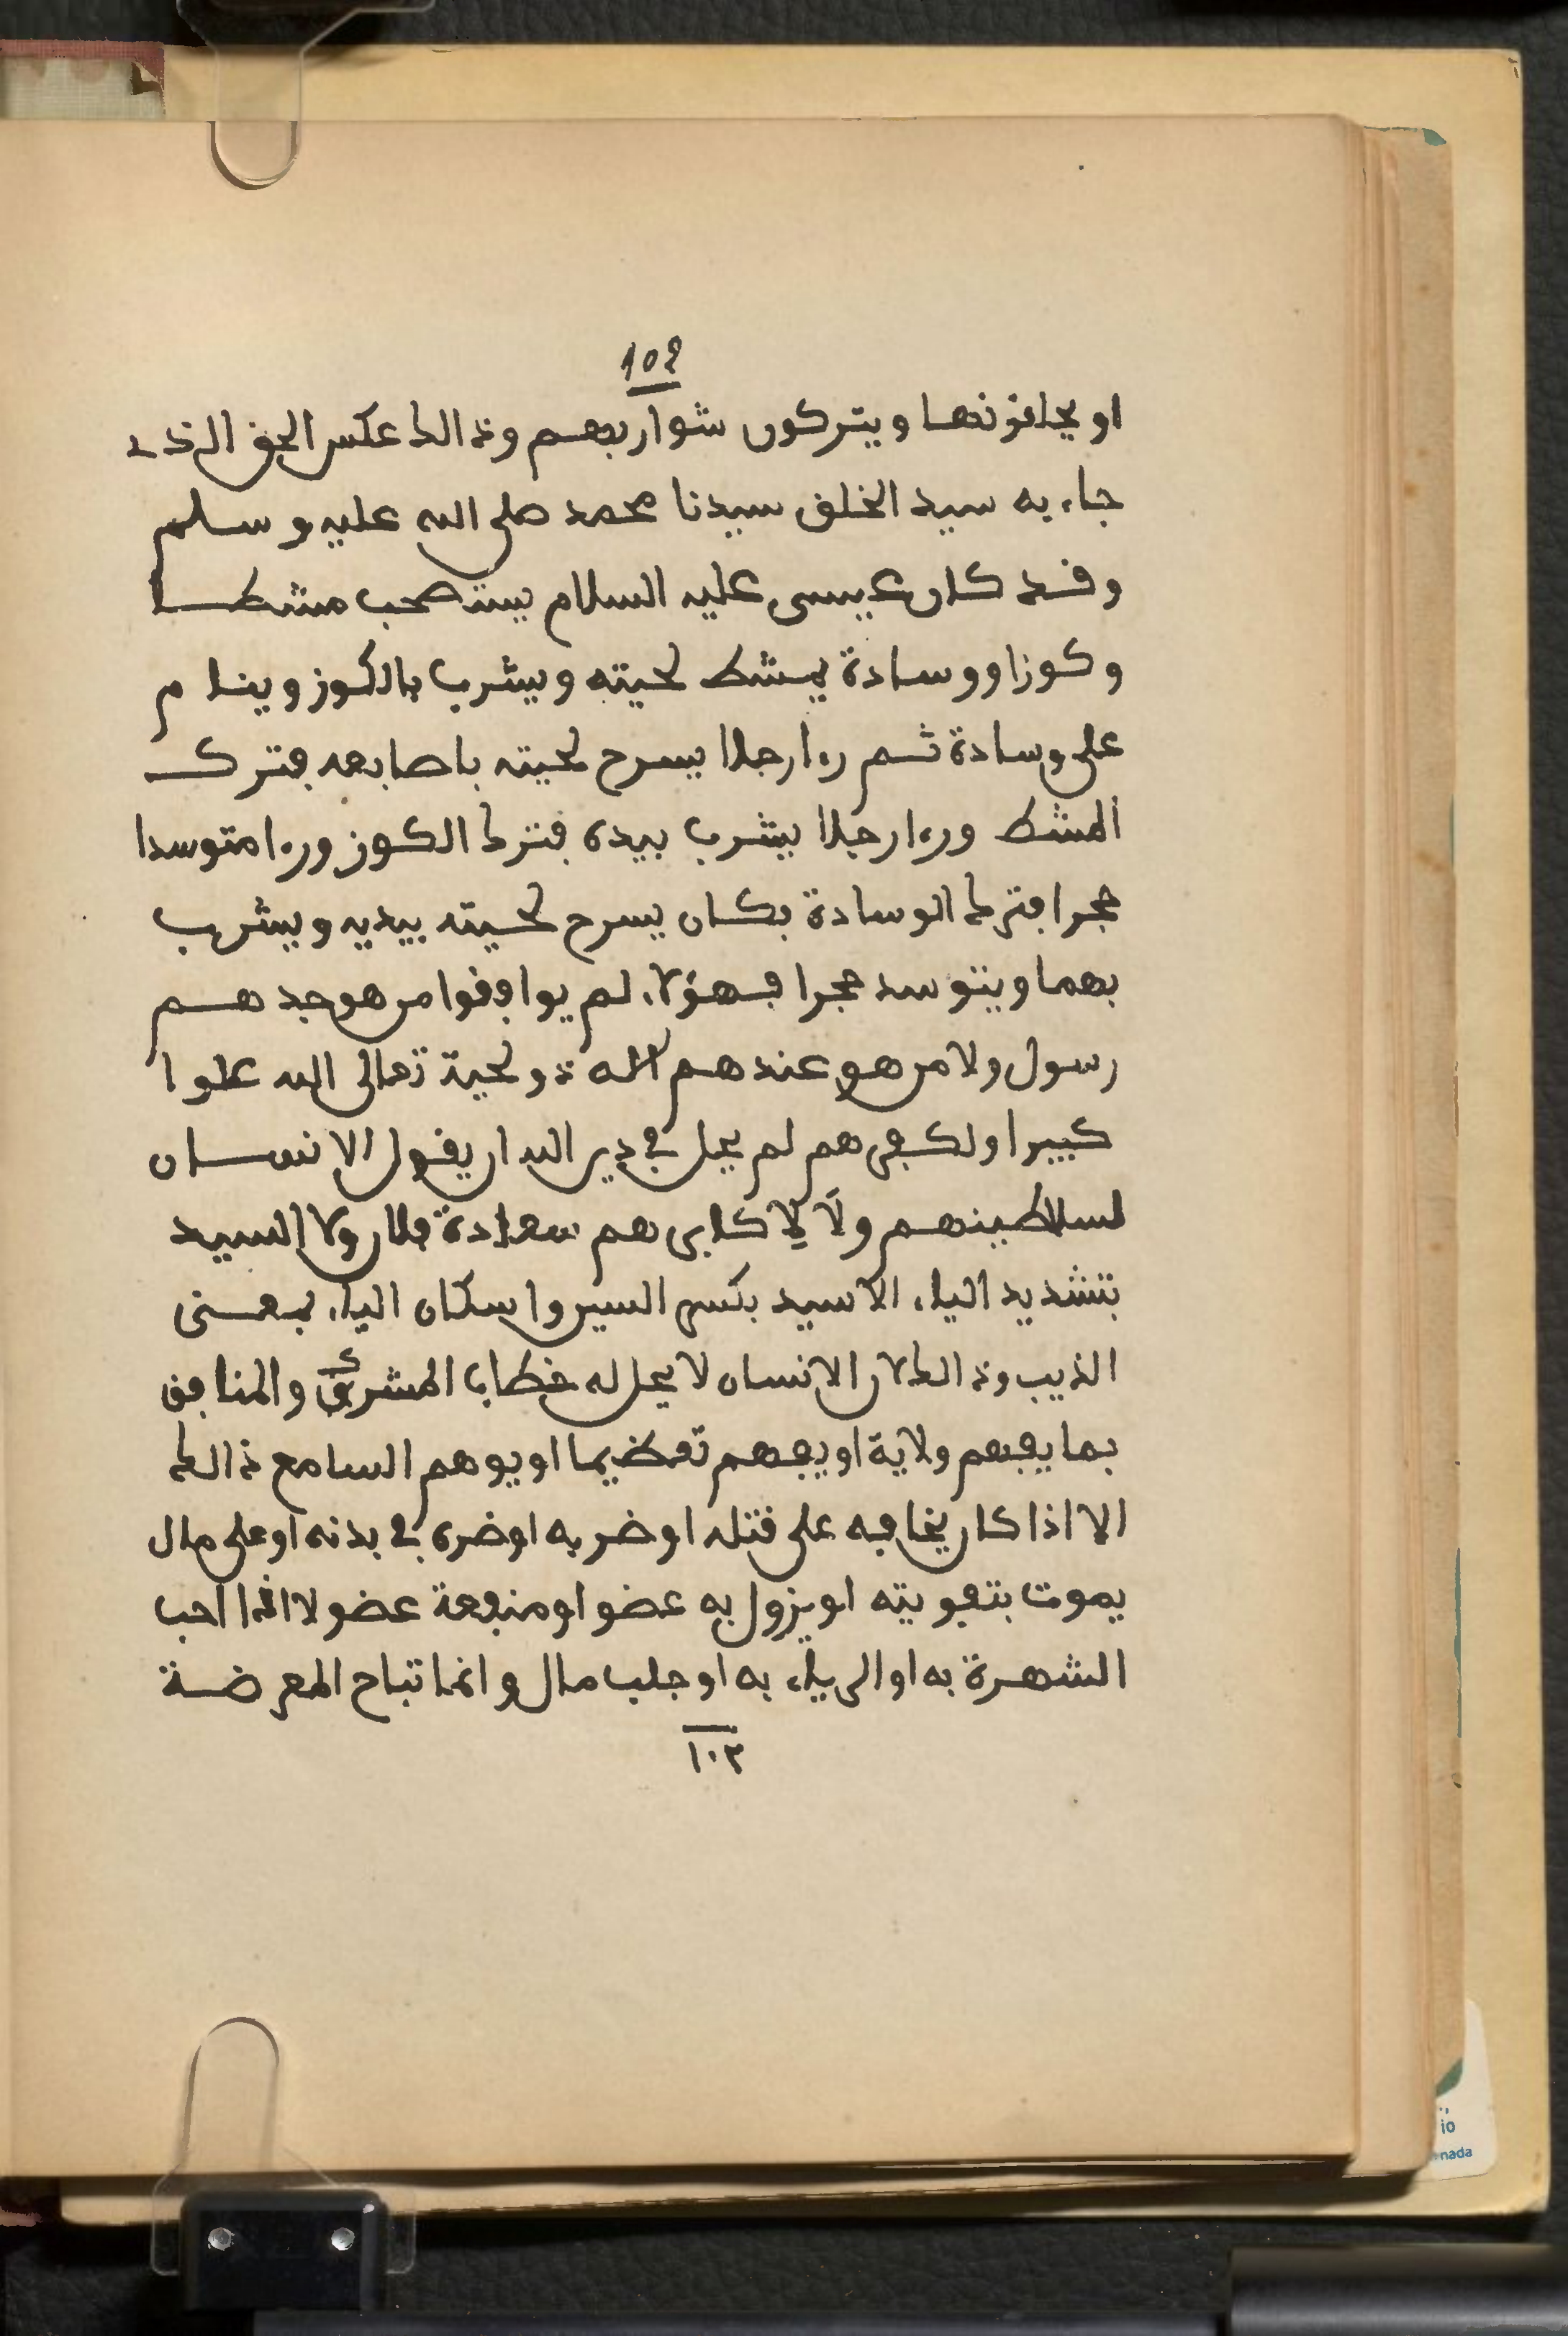 102
او يحلقونها ويتركون شواربهم وذالك عكس الحق الذي
جاء به سيد الخلق سيدنا محمد صلى الله عليه وسلم
وقد كان عيسى عليه السلام يستصحب مشطا
وكوزا ووسادة يمشط لحيته ويشرب بالكوز وينام
على وسادة ثم رءا رجلا يسرح لحيته باصابعه فترك
المشط ورءا رجلا يشرب بيده فترك الكوز ورءا متوسدا
حجرا فترك الوسادة فكان يسرح لحيته بيديه ويشرب
بهما ويتوسد حجرا فهؤلاء لم يوافقوا من هو جدهم
رسول ولا من هو عندهم اله ذو لحية تعالى الله علوا
كبيرا ولكفرهم لم يحل في دين الله ان يقول الانسان
لسلاطينهم ولا لاكابرهم سعادة فلان ولا السيد
بتشديد الياء الا سيد بكسر السين واسكان الياء بمعنى
الذيب وذالك لان الانسان لا يحل له خطاب المشرك والمنافق
بما يفهم ولاية او يفهم تعظيما او يوهم السامع ذالك
الا اذا كان يخاف على قتله او ضربه او ضره في بدنه او على مال
يموت بتفويته او يزول به عضو او منفعة عضو لا اذا احب
الشهرة به او الرياء به او جلب مال وانما تباح المعرضة
١٠٣
io
nada